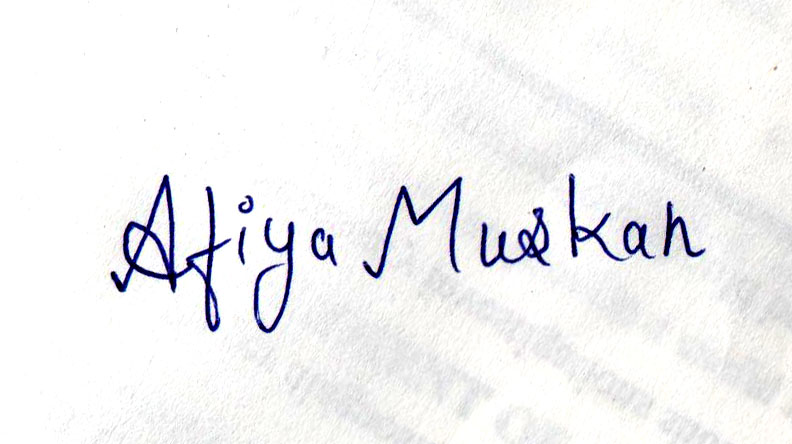 Afiya Muskan